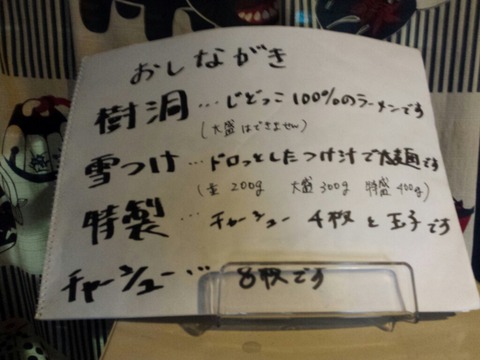 おしながき
樹洞…じどっこ100%のラーメンです
(大盛はできません)
雪つけ…ドロっとしたつけ汁で太麺です
(並 200g 大盛 300g 特盛 400g)
特製…チャーシュー4枚と玉子です
チャーシュー… 8枚です